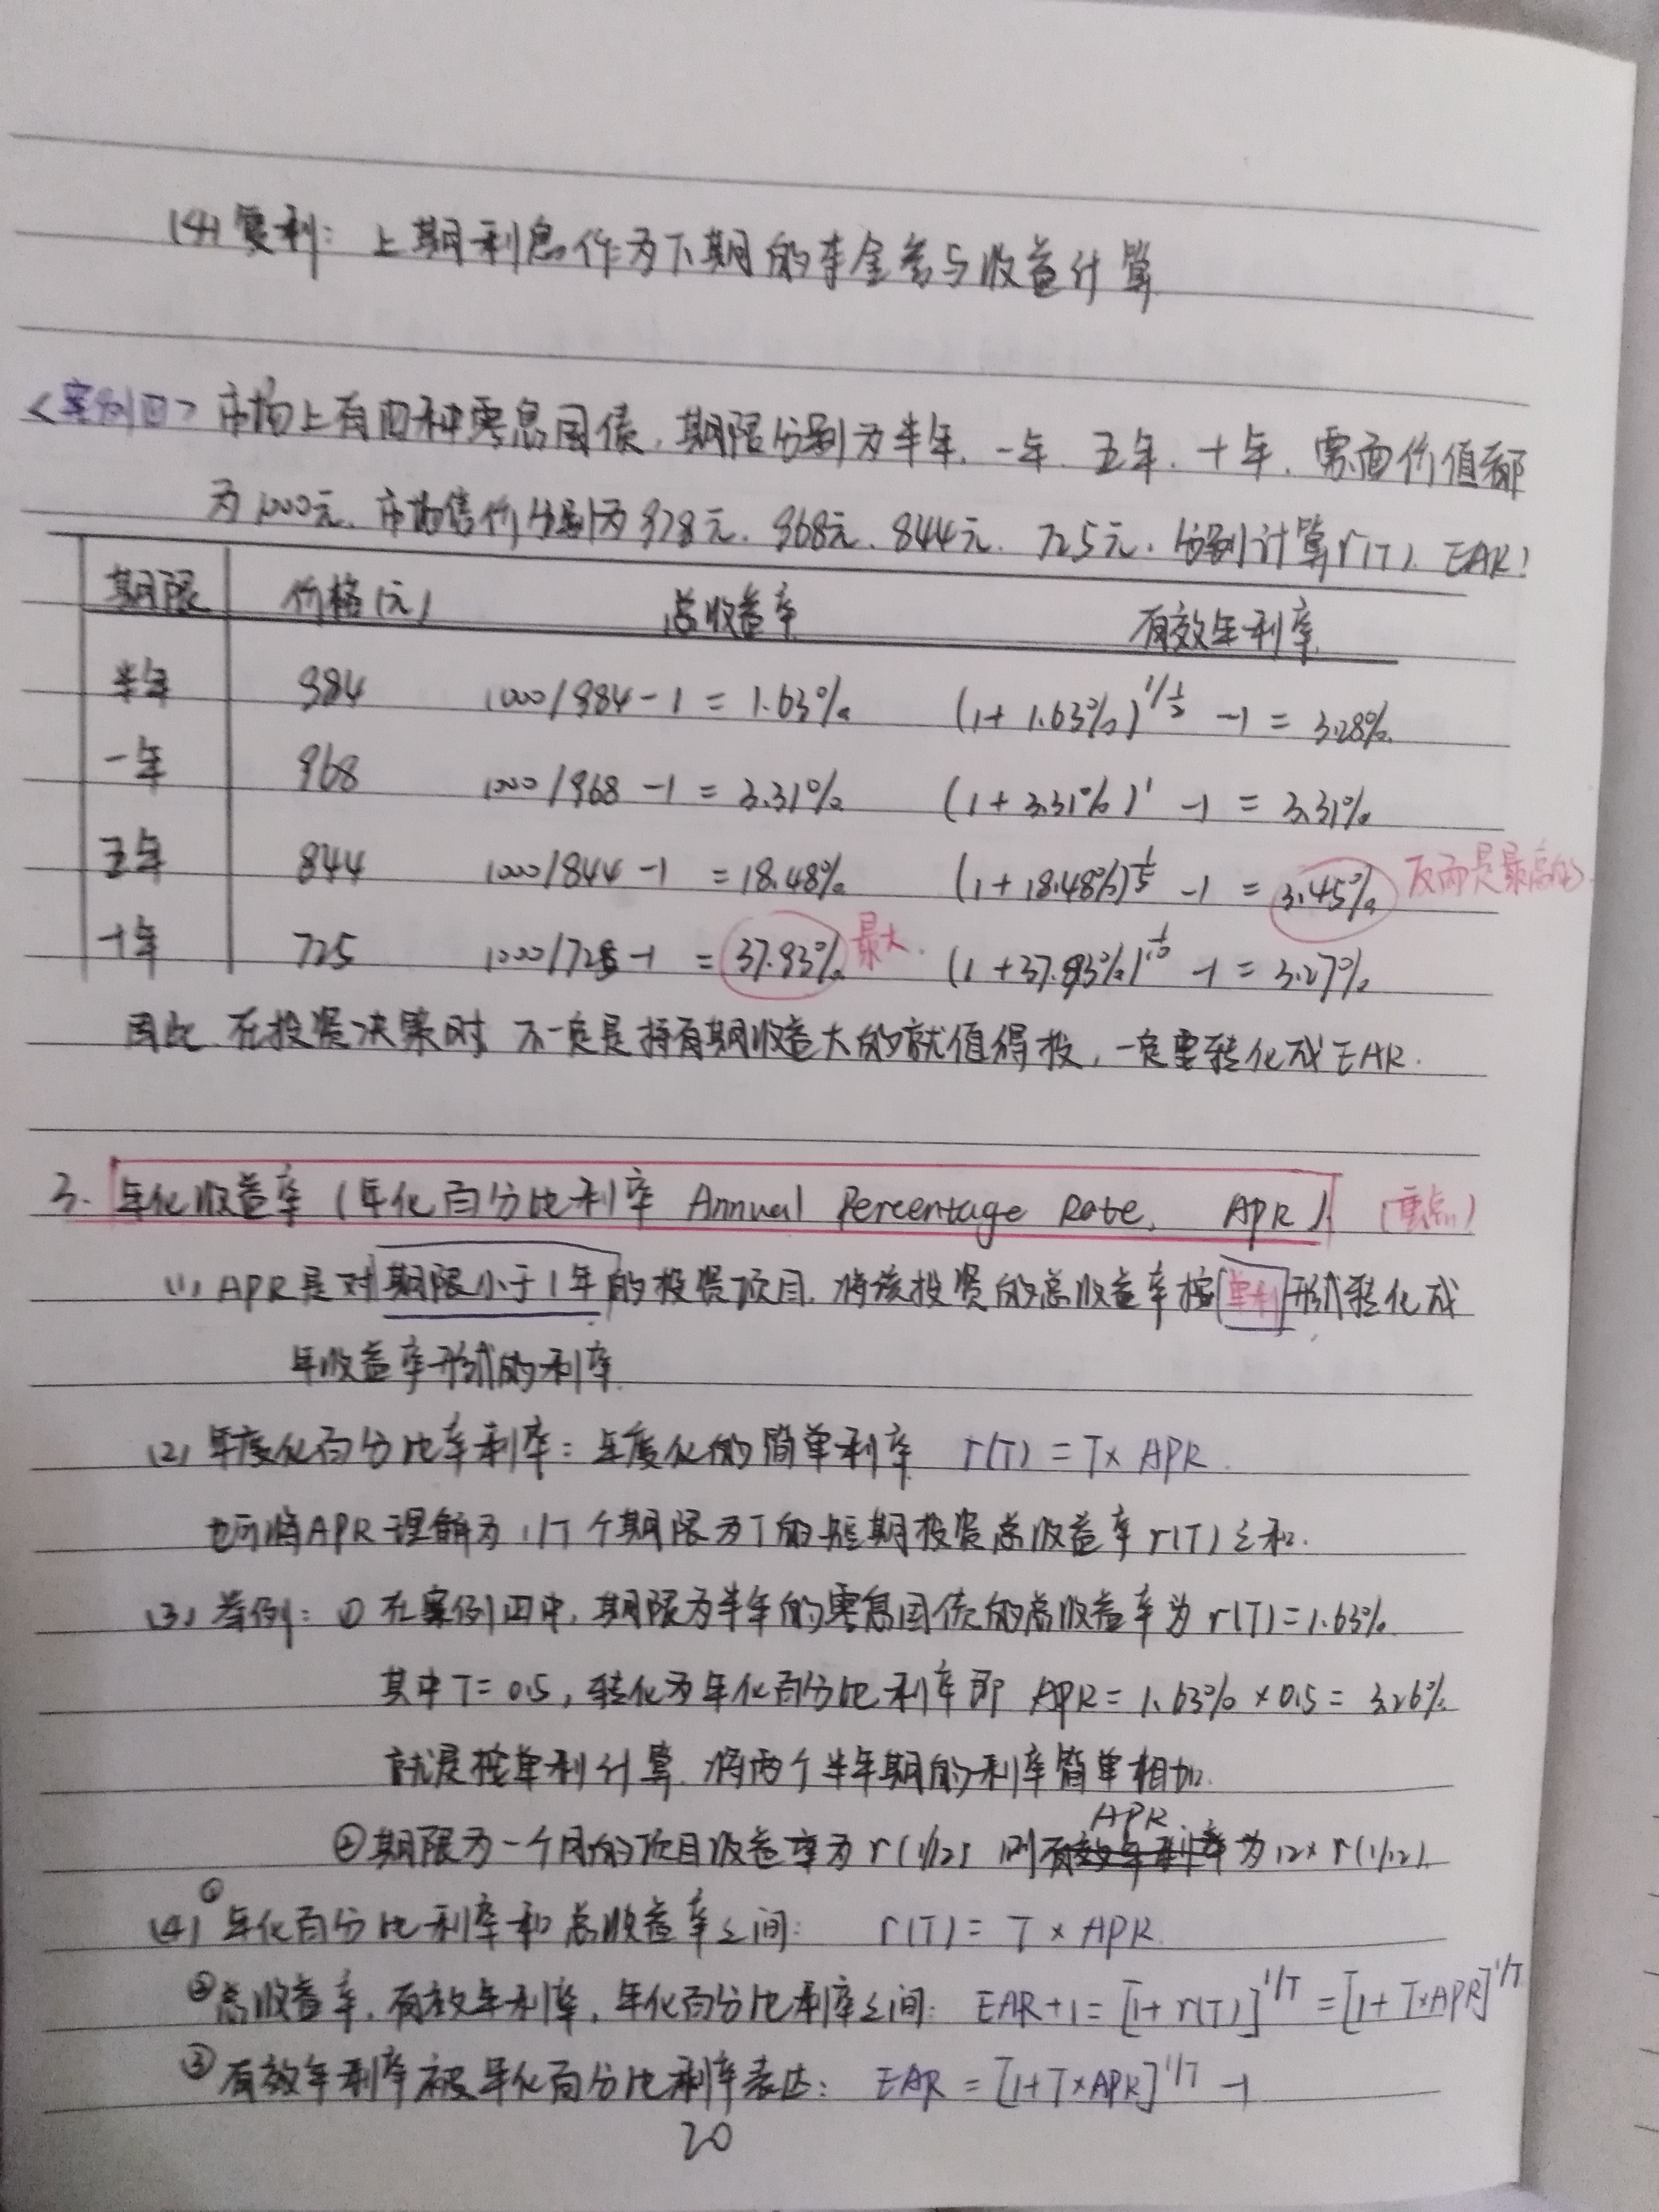 (4) 复利：上期利息作为下期的本金参与收益计算
<案例四> 市场上有四种零息国债，期限分别为半年、一年、五年、十年，票面价值都
为1000元，市场售价分别为978元、968元、844元、725元，分别计算r(T)、EAR！
期限 价格(元) 总收益率 有效年利率
半年 984 1000/984-1=1.63% (1+1.63%)^{1/½}-1=3.28%
一年 968 1000/968-1=3.31% (1+3.31%)^1-1=3.31%
五年 844 1000/844-1=18.48% (1+18.48%)^{1/5}-1=3.45% 反而是最高的
十年 725 1000/725-1=37.93% 最大. (1+37.93%)^{1/10}-1=3.27%
因此 在投资决策时 不一定是持有期收益大的就值得投，一定要转化成EAR.
3. 年化收益率（年化百分比利率 Annual Percentage Rate, APR） (重点)
(1) APR是对期限小于1年的投资项目，将该投资的总收益率按单利形式转化成
年收益率形式的利率
(2) 年度化百分比率利率：年度化的简单利率 r(T)=T×APR.
也可将APR理解为1/T个期限为T的短期投资总收益率r(T)之和.
(3) 举例：① 在案例四中，期限为半年的零息国债的总收益率为r(T)=1.63%
其中T=0.5，转化为年化百分比利率即 APR=1.63%×0.5=3.26%
就是按单利计算，将两个半年期的利率简单相加.
②期限为一个月的项目收益率为r(1/12) 则APR为12×r(1/12)
(4) ①年化百分比利率和总收益率之间： r(T)=T×APR
②总收益率，有效年利率，年化百分比利率之间：EAR+1=[1+r(T)]^{1/T}=[1+T×APR]^{1/T}
③有效年利率被年化百分比利率表达：EAR=[1+T×APR]^{1/T}-1
20